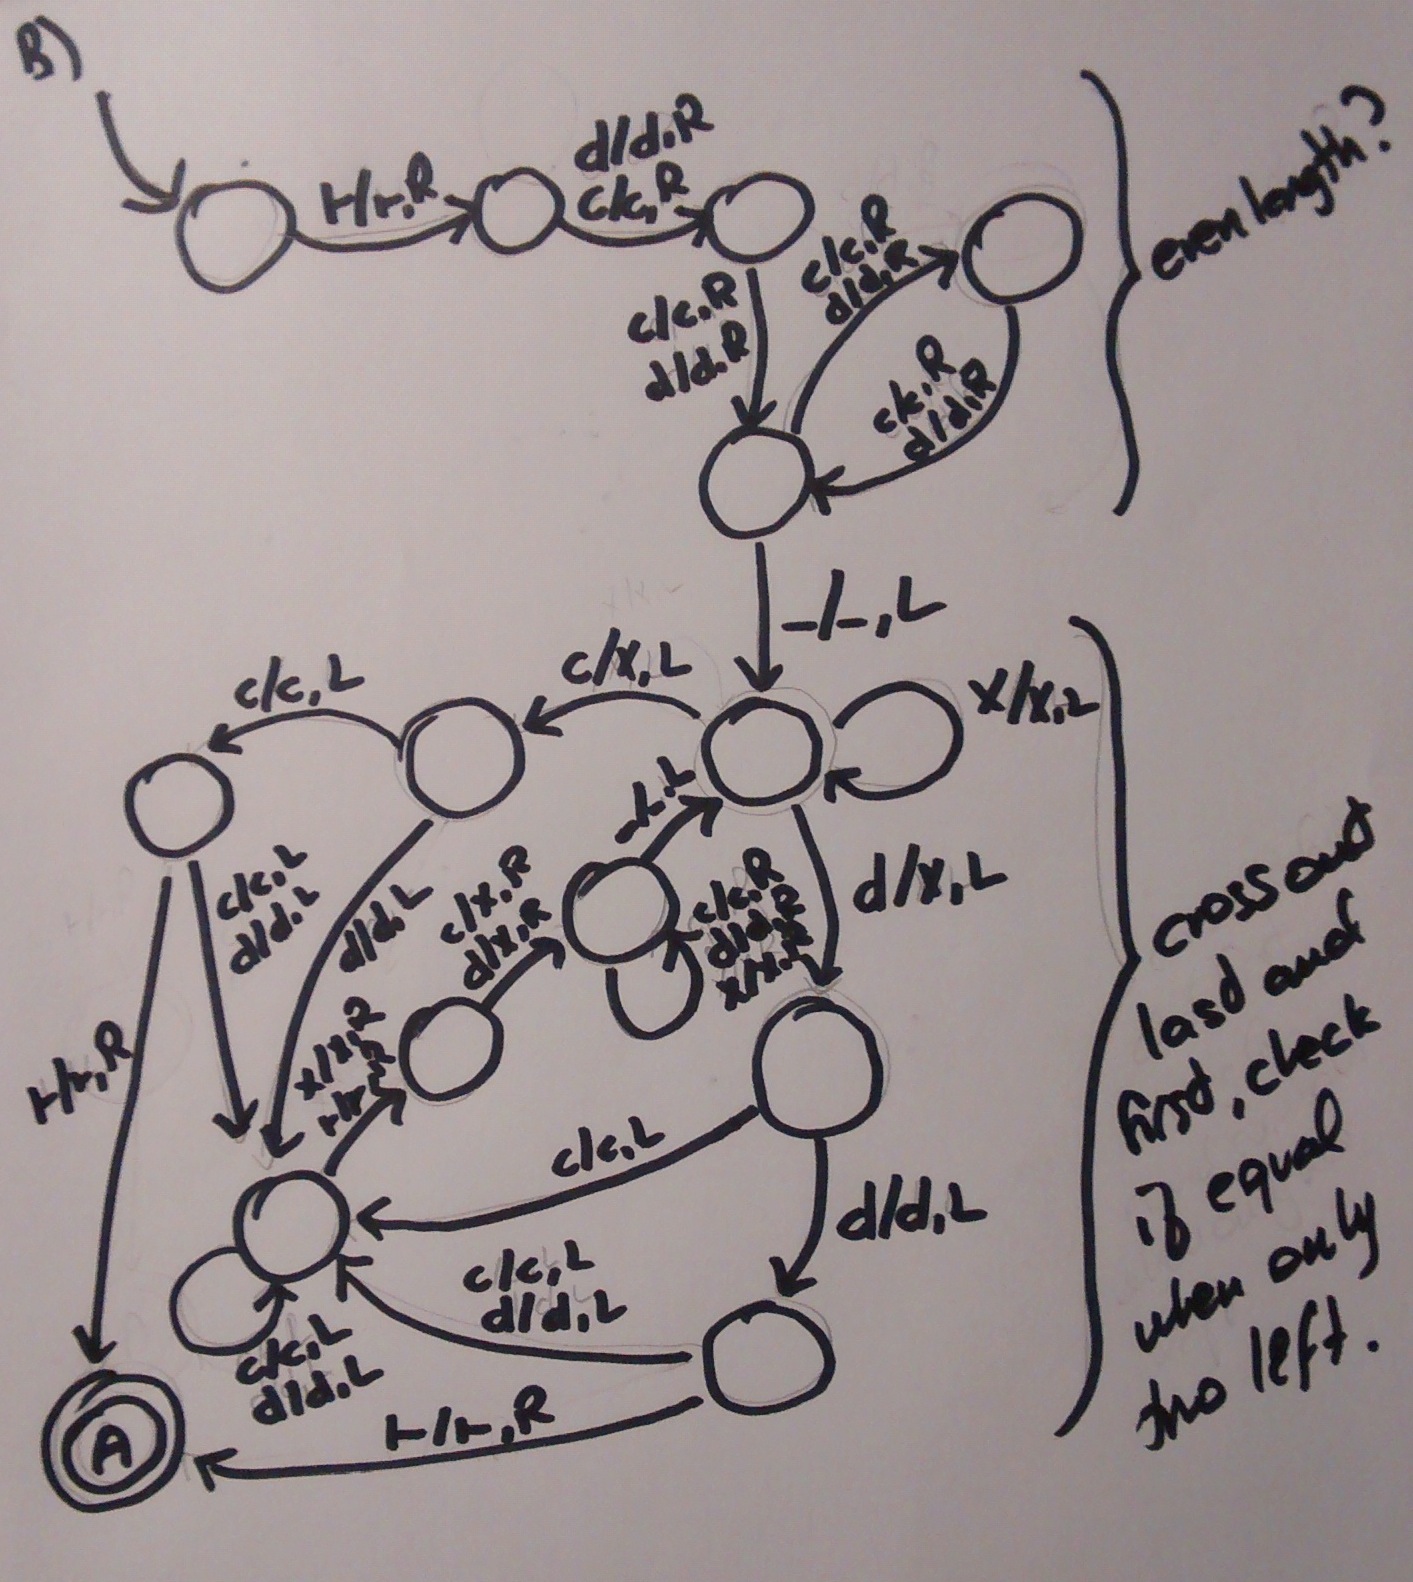 B)
⊢/⊢,R
d/d,R
c/c,R
c/c,R
d/d,R
c/c,R
d/d,R
c/c,R
d/d,R
even length?
-/-,L
c/x,L
x/x,L
c/c,L
-/-,L
d/x,L
c/c,L
d/d,L
d/d,L
c/x,R
d/x,R
c/c,R
d/d,R
x/x,R
⊢/⊢,R
x/x,R
⊢/⊢,R
c/c,L
d/d,L
c/c,L
d/d,L
c/c,L
d/d,L
⊢/⊢,R
A
cross out
last and
first, check
if equal
when only
two left.